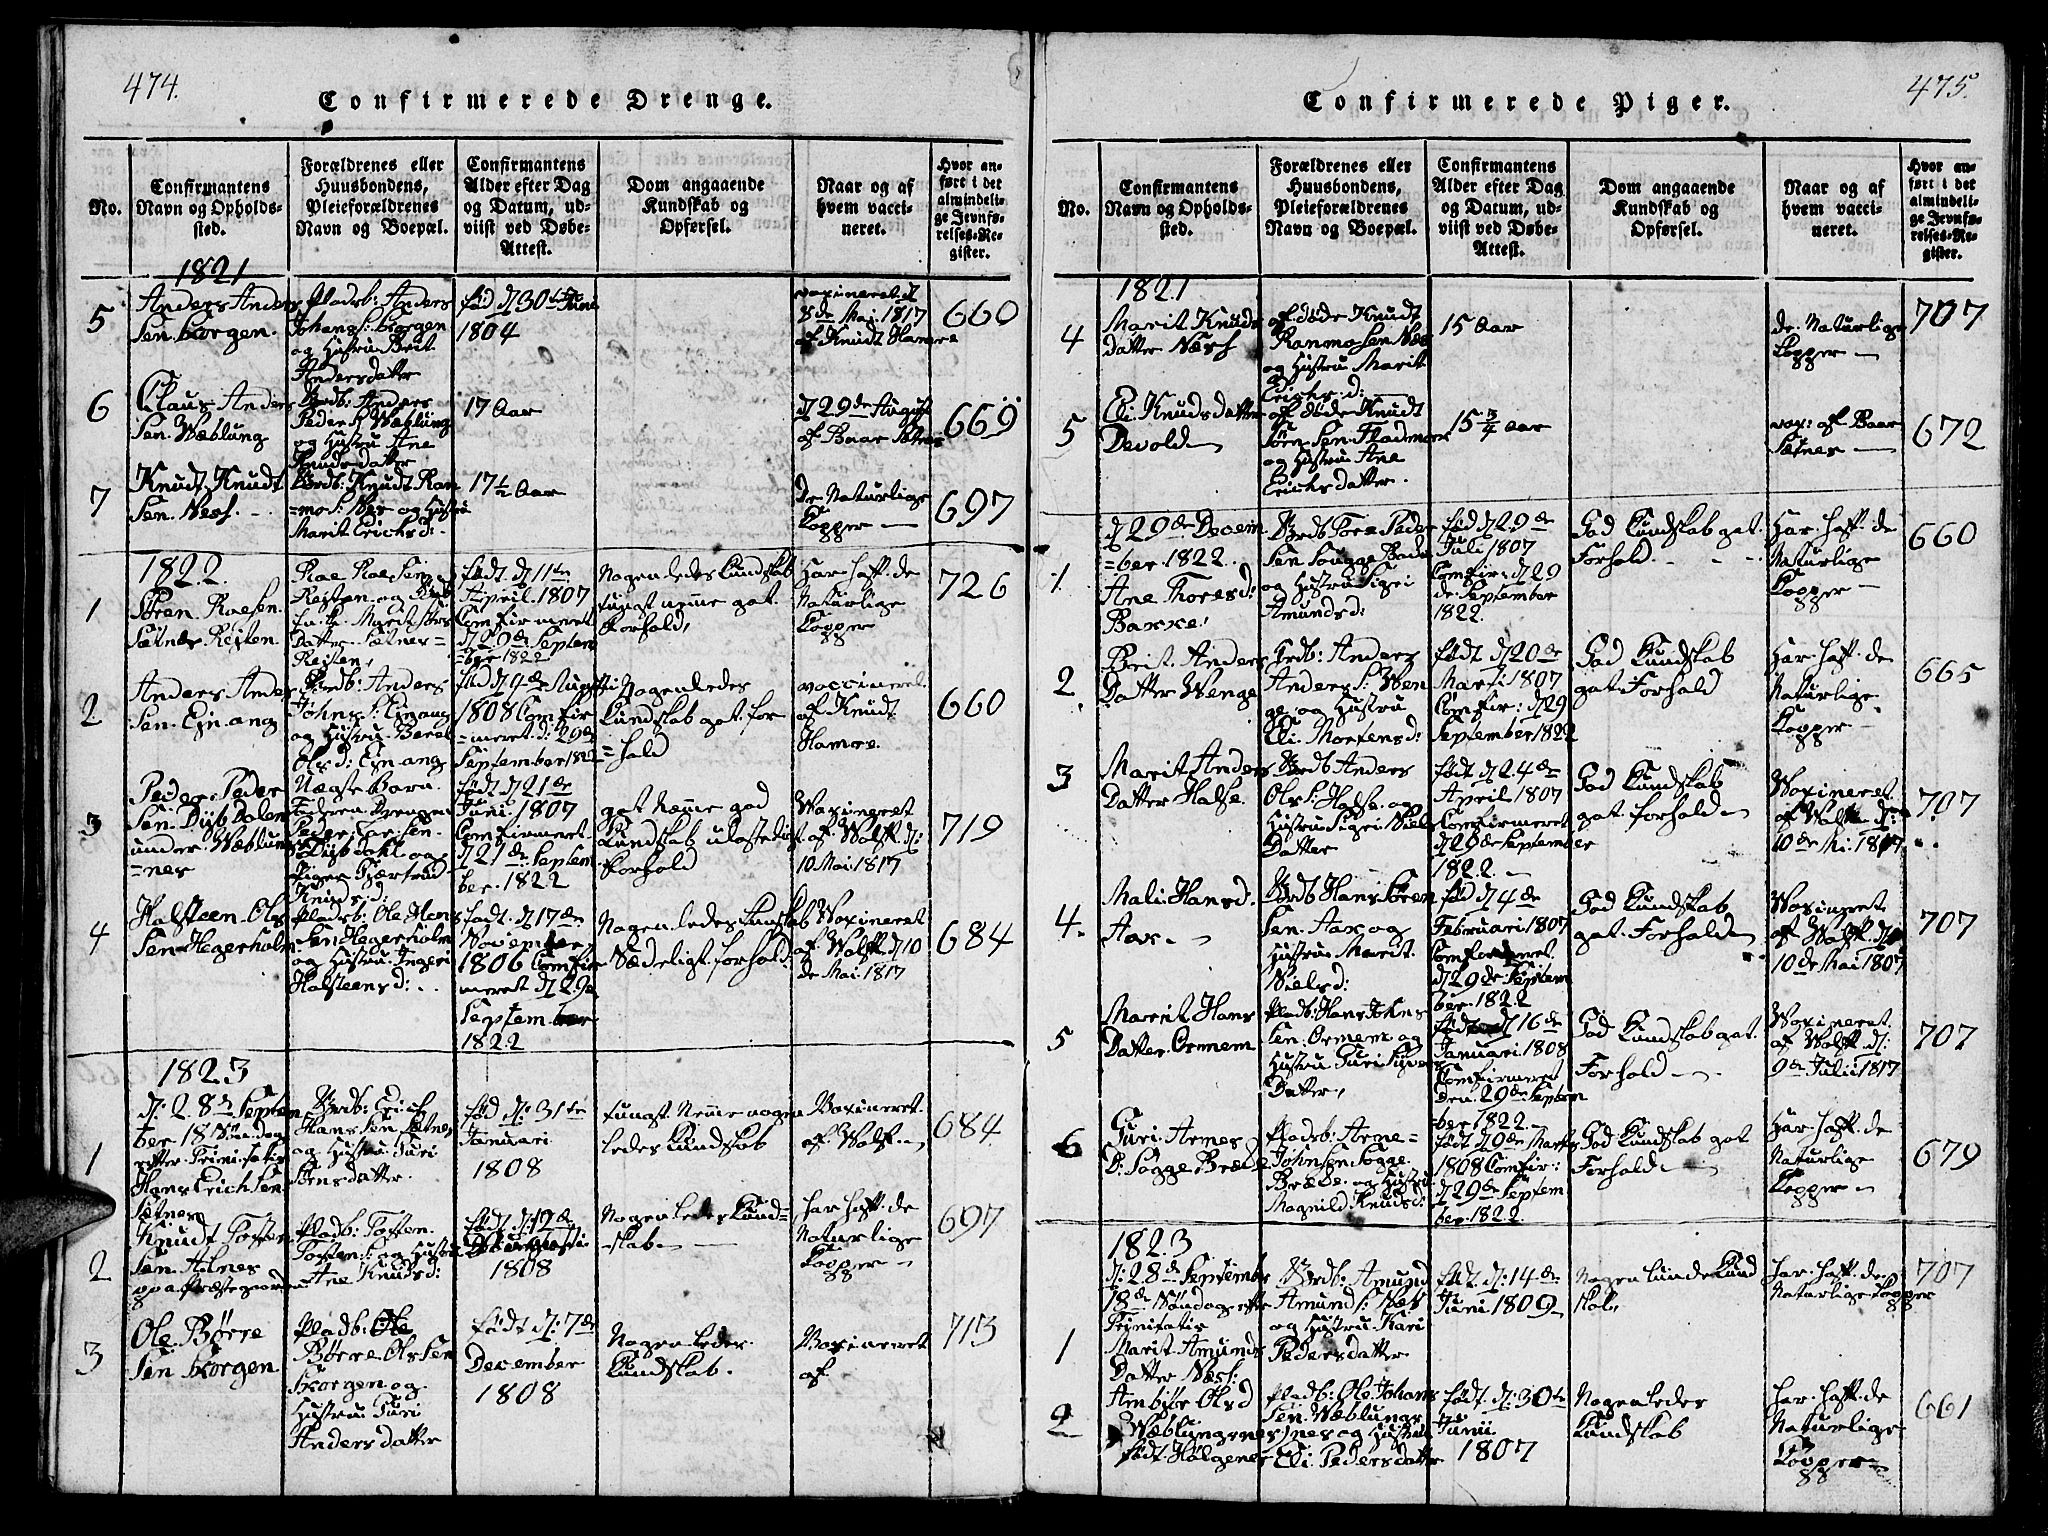 474.
Confirmerede Drenge.
No.
Confirmantens
Navn og Opholds-
sted.
Forældrenes eller
Huusbondens,
Pleieforældrenes
Navn og Boepæl.
Confirmantens
Alder efter Dag
og Datum, ud-
viist ved Døbe-
Attest.
Dom angaaende
Kundskab og
Opførsel.
Naar og af
hvem vacci-
neret.
Hvor an-
ført i det
almindeli-
ge Jevnfø-
relses-Re-
gister.
1821
5
Anders Anders
Sen. Skorgen.
Pladsb: Anders
Johans S: Skorgen
og Hustru Brit
Andersdatter
fød d 30te Juni
1804
vaxineret. d
8de Mai. 1817
af Knudt Hamre
660
6
Claus Anders
Sen. Wæblung
Brdb: Anders
Peder S. Wæblung
og Hustru Ane
Knudsdatter
17 Aar
d 29de August
af Baar Sætnes
669
7
Knudt Knudt
Sen. Næss.
Brdb: Knudt Ran
=mo S: Næs og Hustru
Marit Erichsd:
17 1/2 Aar
De Naturlige
Kopper
697
1822.
1
Sören Roesen.
Sætnes Reiten
Roe Roe Sen
Reiten og
Marit
Datter. Sætnes=
Reiten,
født d 11te
April. 1807
Comfirmeret
d 29de Septem
=ber 1822
Nogenledes Kundskab
tungt nemme got.
Forhold,
Har haft de
Naturlige
Kopper
726
2
Anders Anders
Sen. Ejnang
Brdb: Anders
Johns S: Ejnang
og Hustru Berel
Olsd: Ejnang
fød d 9de August
1808 Comfir
=meret. d: 29de
September 1822
Nogenledes
Kundskab got. for
=hold
vaccineret.
af Knudt
Hamre.
660
3
Peder Peder
Sen. Dybdalen
under Wæblungs
=nes
Uægte Barn.
Faderen Drengen
Peder Larsen.
Dybdahl og
Pigen Gjærtrud
Knudsd:
født d 21de
Juni, 1807
Comfirmeret
d 21de Septem
ber. 1822
got Næmme god
Kundskab ulasteligt
Forhold
Waxineret
af Wolff. d:
10 Mai. 1817
719
4
Halsteen. Ols
Sen Hegerholm
Pladsb: Ole Hans
Sen Hegerholm
og Hustru Ingeri
Halsteensd:
født. d 17de
November
1806 Comfir
meret d 29de
September
1822
Nogenledes Kundskab
Sædeligt forhold.
Waxineret
af Wolff. d 10
de Mai. 1817
684
1823
1
d: 28de Septem
ber 18 Söndag
efter Trinitatis
Hans Erich Sen.
Sætnes
Brdb: Erich
Hans Sen Sætnes
og Hustru Turi
Jensdatter.
fød d: 31te
Januari
1808
tungt Nemme nogen
ledes Kundskab
Vaxineret.
af Wolff
684
2
Knudt Tosten
Sen. Alnes
opa. Præstegaarden
Pladsb: Tosten.
Tostens: og Hustru
Ane Knudsd:
født d: 12de
1808
Nogenledes Kund=
=skab
har haft. de
Naturlige
Kopper
697
3
Ole Börre
Sen Skorgen
Pladsb: Ole
Börre Ols Sen
Skorgen og.
Hustru Turi
Andersdatter
født d: 7de
December
1808
Nogenledes
Kundskab.
Vaxineret
af
713
475.
Confirmerede Piger.
No.
Confirmantens
Navn og Opholds-
sted.
Forældrenes eller
Huusbondens,
Pleieforældrenes
Navn og Boepæl.
Confirmantens
Alder efter Dag
og Datum, ud-
viist ved Døbe-
Attest.
Dom angaaende
Kundskab og
Opførsel.
Naar og af
hvem vacci-
neret.
Hvor an-
ført i det
almindeli-
ge Jevnfø-
relses-Re-
gister.
1821
4
Marit Knuds
datter Næss
afdøde Knudt
Ranmosen Næs
og Hustru Marit
Erichs:d:
15 Aar
de. Naturlige
Kopper
707
5
Eli Knudsdatter
Devold
afdøde Knudt
Sörn Sen Fladmoe
og Hustru Ane
Erichsdatter.
15 3/4 Aar
vax: af Baar
Sætnes
672
d 29de Decem
=ber 1822.
1
Ane Thoresd:
Baxxe.
Brdb Tore Peder
Sen Sougge
og Hustru Sigri
Amundsd:
fød d 29de
Juli 1807
Comfir: d 29
de September
1822.
God Kundskab got.
Forhold.
Har haft. de
Naturlige
Kopper
660
2
Brit. Anders
Datter Wenge
Brdb: Anders
Anders S: Wen
ge. og Hustru
Eli. Mortensd:
født d 20de
Marsi 1807
Comfir: d 29
September 1822
God Kundskab
got. Forhold
Har haft de
Naturlige.
Kopper
665
3
Marit Anders
Datter Halse.
Brdb Anders
Ols S: Halse. og
Hustru Sigri Niels
Datter
født d 24de
April 1807
Comfirmeret
d 29de September
1822.
God Kundskab
got. forhold
Waxineret.
af Wolff d:
10de Mi. 1817
707
4.
Mali. Hansd.
Aax.
Brdb Hans Sören
Sen. Aax og
Hustru Marit.
Nielsd:
fød d 4de
Februari 1807
Comfirmeret.
d 29de Septem
ber. 1822
God Kundskab
got. Forhold
Waxineret
af Wolff. d
10de Mai 1807
707
5
Marit Hans
Datter. Ormem
Pladsb: Hans Johns
Sen. Ormem og
Hustru Turi
Datter,
født d 16de
Januari 1808
Comfirmeret
den. 29de Septem
ber 1822.
God Kundskab got.
Forhold
Waxineret.
af Wolff. d:
9de Julii 1817
707
6
Guri Arnes
D. Sogge Bræde
Pladsb: Arne=
Johnsen Sogge
Bræde. og Hustru
Magnild Knudsd:
født d 9de Marts
1808 Comfir:
d 29de Septem
ber. 1822
God Kundskab got
Forhold
Har haft. de
Naturlige
Kopper
679
1823
1
d: 28de Septembr
18de Söndag efter
Trinitatis
Marit Amunds
Datter Næss:
Brdb: Amund
Amunds: Næss
og Hustru Kari
Pedersdatter
født. d: 14de
Juni 1809
Nogenlunde Kund
skab,
har haft. de
Naturlige Kopper
707
2
Ambjör Olsd
Wæblungsnes
født. Holgenes
Pladsb: Ole Johans
Sen. Wæblungs
nes og Hustru
Eli Pedersdatter
født. d. 30te
Junii
1807
Nogenledes
Kundskab
har haft de
Naturlige
Kopper
661